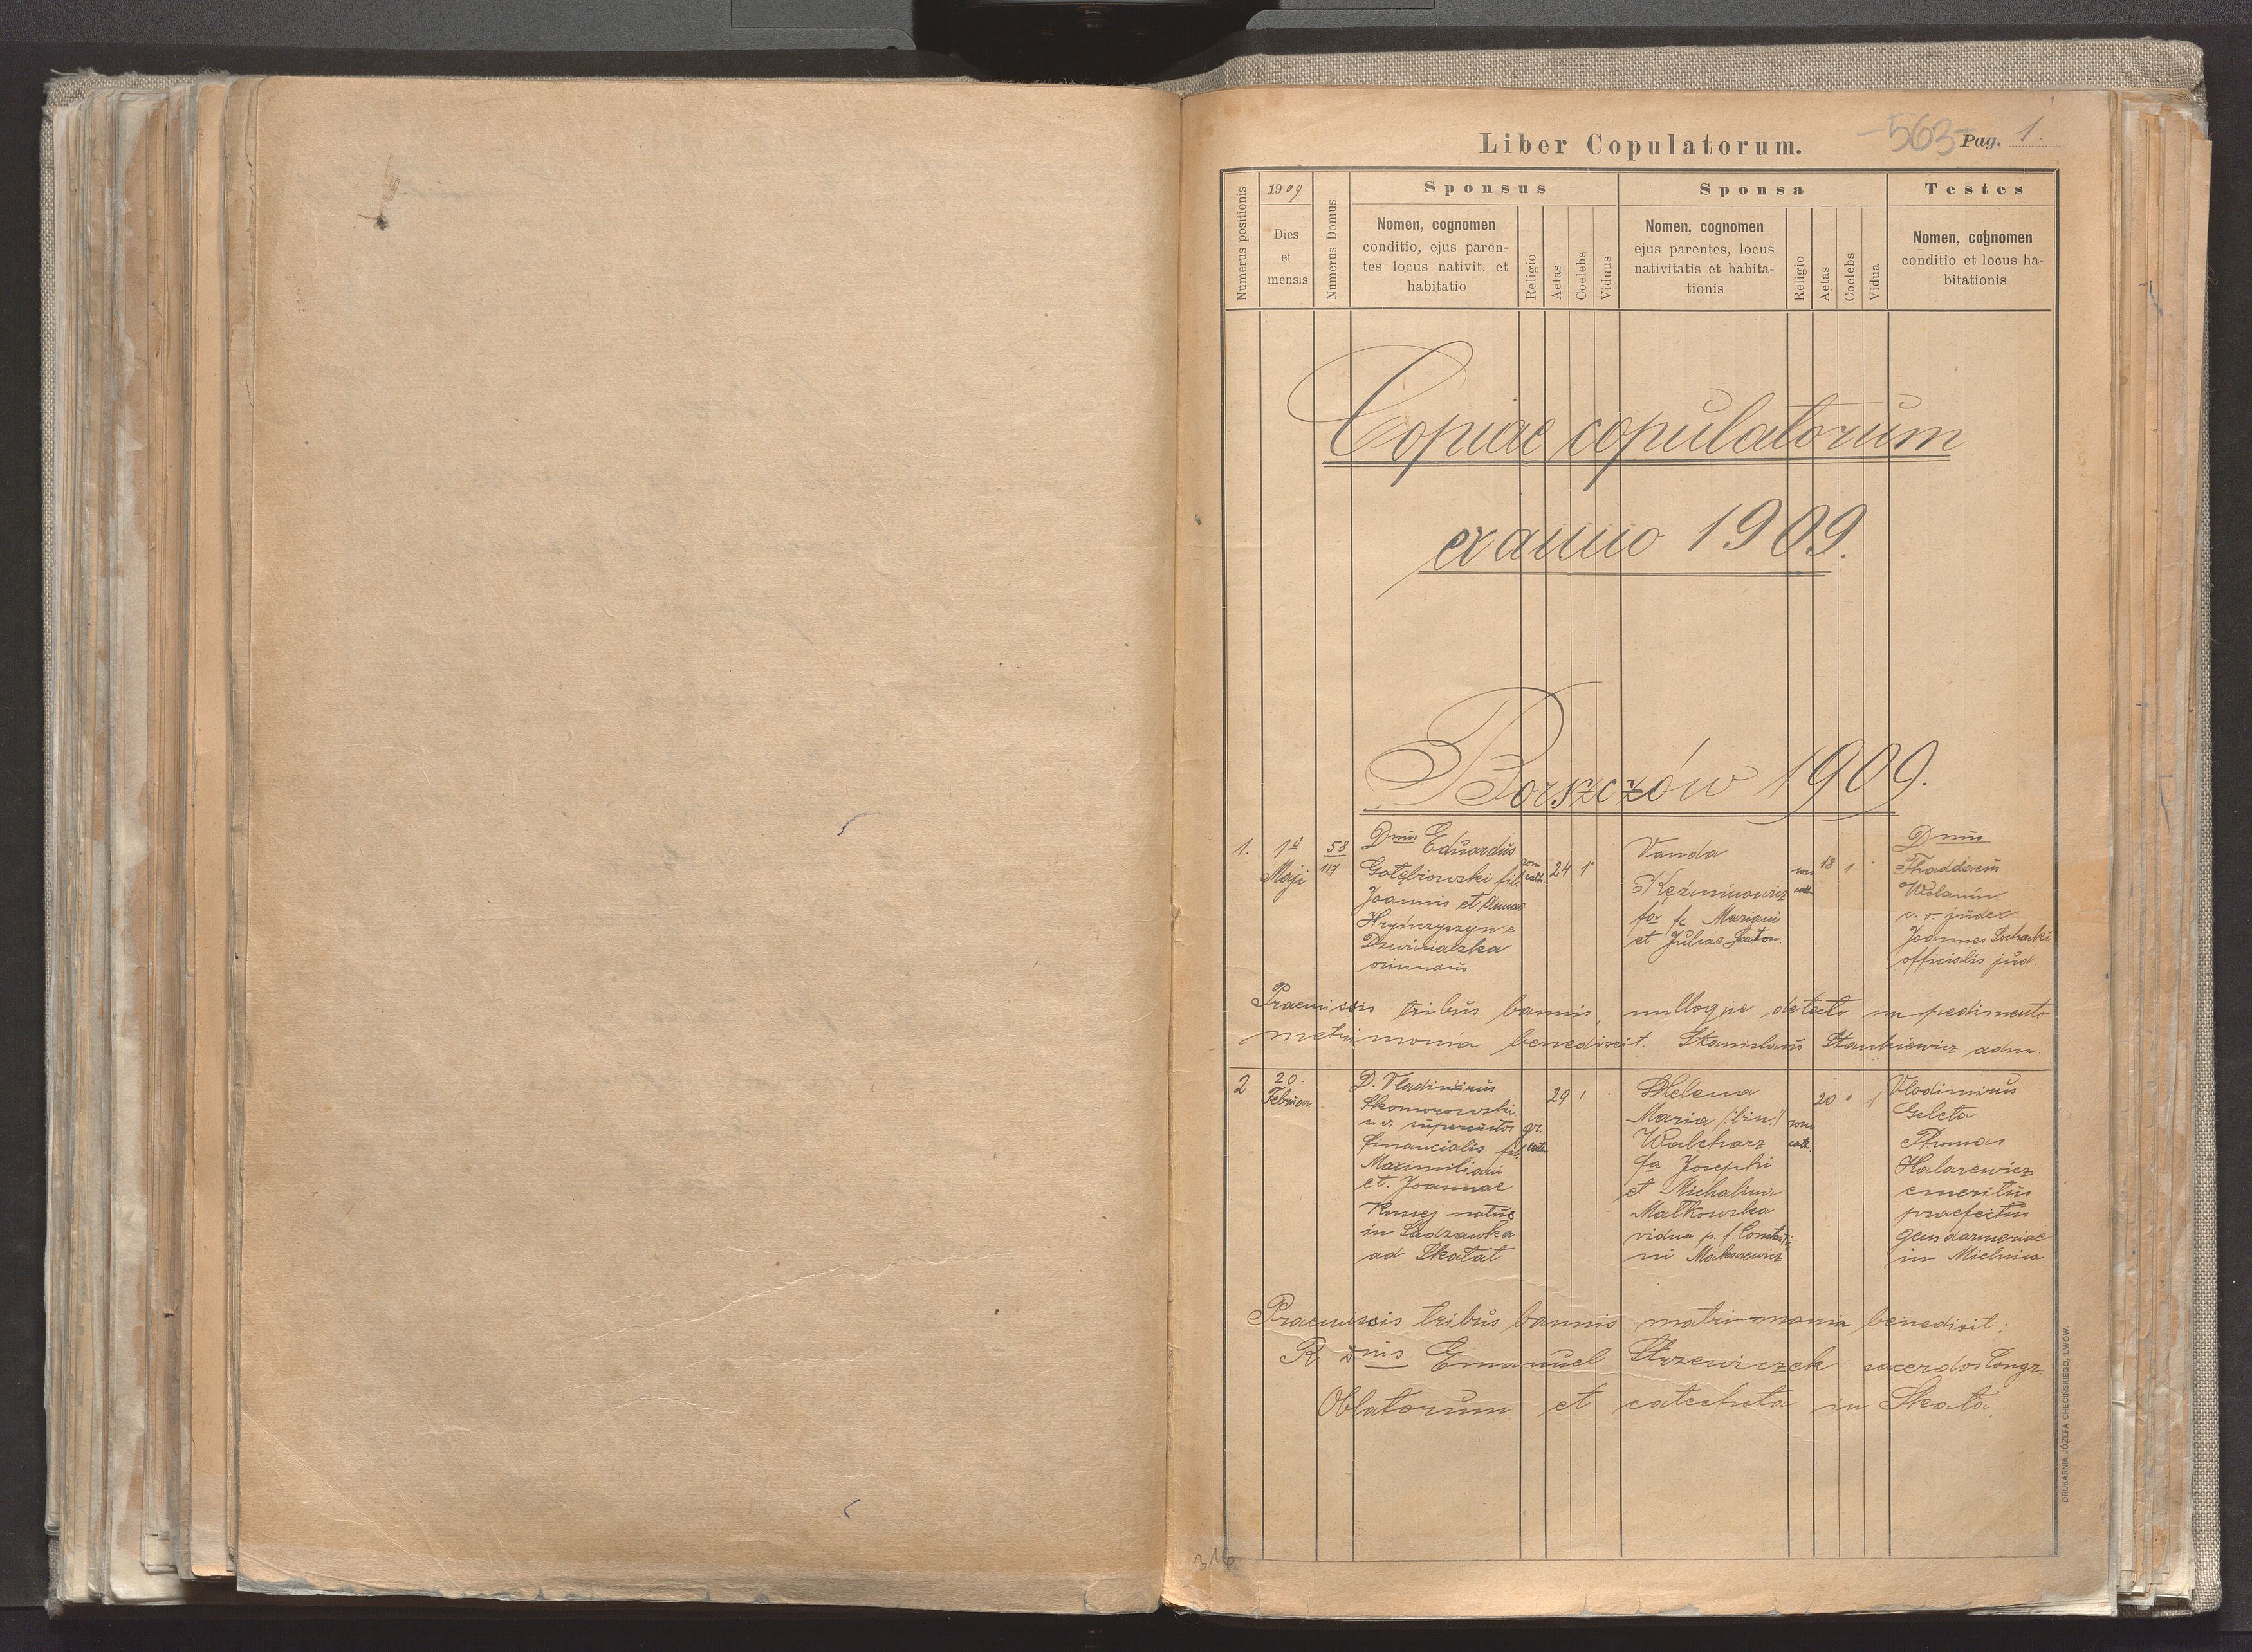 Liber Copulatorum.
-563- Pag. 1.
Numerus positionis
1909
Dies
et
mensis
Numerus Domus
Sponsus
Nomen, cognomen
conditio, ejus paren-
tes locus nativit. et
habitatio
Religio
Aetas
Coelebs
Viduus
Sponsa
Nomen, cognomen
ejus parentes, locus
nativitatis et habita-
tionis
Religio
Aetas
Coelebs
Vidua
Testes
Nomen, cognomen
conditio et locus ha-
bitationis
Copiae copulatorum
ex anno 1909.
Borszczów 1909.
1.
1º
Maji
58
117
Dnus Eduardus
Gołębiowski fil.
Joannis et Annae
Hryńczyszyn e
Dzwiniaczka
oriundus
rom
cath.
24
1
Vanda
fa Mariani
et Juliae
rom
cath
18
1
Dnus
Thaddaeus
Wolanin
c. r. judex
Joannes
officialis jud.
Praemissis tribus bannis, nulloque detecto impedimento
matrimonia benedixit. Stanislaus Stankiewicz adm.
2
20
Februar
D. Vladimirus
Skomorowski
c. r.
financialis fil.
Maximiliani
et. Joannae
natus
in Sadzawka
ad Skałat
gr.
cath
29
1
Helena
Maria (:bin.:)
Walcharz
fa Josephi
et Michalina
Małkowska
vidua p. f. Constanti
ni
rom
cath.
20
1
Vladimirus
Geleta
Thomas
Halarewicz
emeritus
praefectus
gendarmeriae
in Mielnica
Praemissis tribus bannis matrimonia benedixit:
R. Dnus Emanuel sacerdos Congr.
Oblatorum et catecheta in Skała.
DRUKARNIA JÓZEFA CHĘCIŃSKIEGO, LWÓW.
316